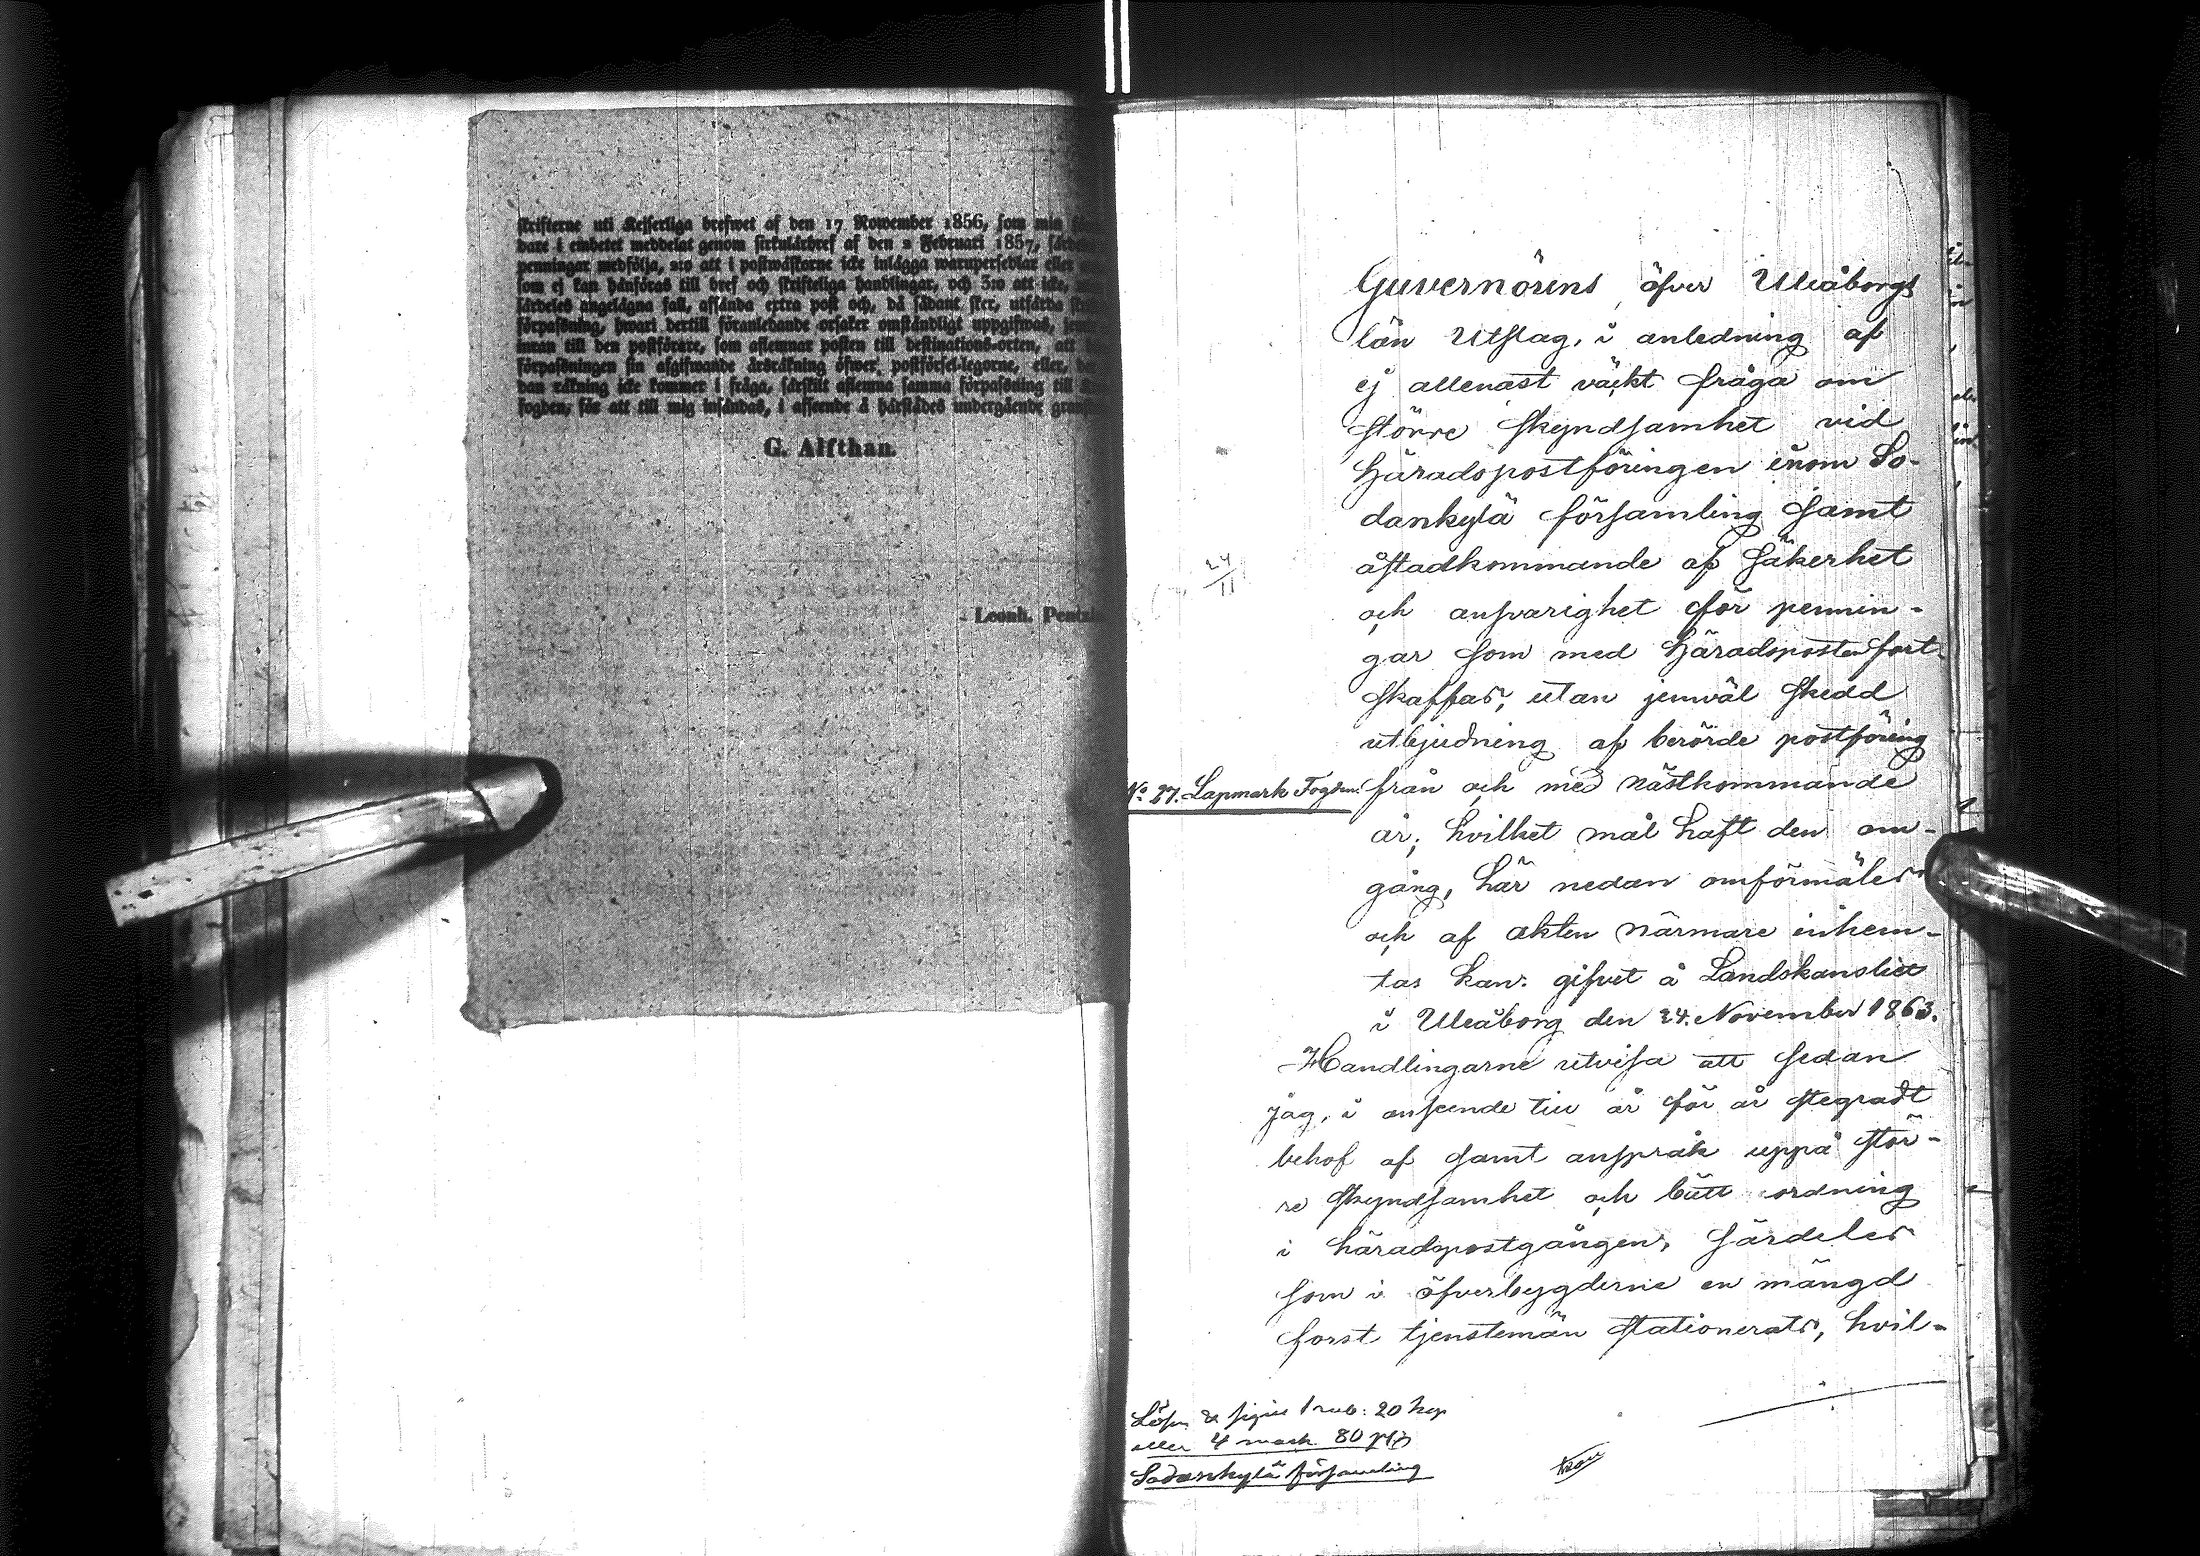 skrifterne uti Kejserliga brefwet af den 17 Nowember 1856, som min
dare i embetet meddelat genom sirkulärbref af den 2 Februari 1857,
penningar medfölja, 2:o att i postwäskorne icke inlägga warupersedlar eller
som ej kan hänföras till bref och skrifteliga handlingar, och 3:o att icke,
särdeles angelägna fall, afsända extra post och, då sådant sker, utfärda
förpaßning, hwari dertill föranledande orsaker omständligt uppgifwas,
innan till den postförare, som aflemnar posten till destinations-orten, att
förpaßningen sin afgifwande årsräkning öfwer postförsel-legorne, eller,
dan räkning icke kommer i fråga, särskilt aflemna samma förpaßning till
fogden, för att till mig insändas, i afseende å härstädes undergående
G. Alfthan.
Leonh.
Guvernörens öfver Uleåborgs
län Utslag, i anledning af
ej allenast väckt fråga om
större skyndsamhet vid
Häradspostföringen inom So-
dankylä församling samt
åstadkommande af säkerhet
och ansvarighet för pennin-
gar som med Häradsposten fort-
skaffas, utan jemväl skedd
utbjudning af berörde postföring
No 27. Lapmark Fogden. från och med nästkommande
år; hvilket mål haft den om-
gång, här nedan omförmäles
och af akten närmare inhem-
tas kan: gifvet å Landskansliet
i Uleåborg den 24. November 1863.
Handlingarne utvisa att sedan
jag, i anseende till år för år stegradt
behof af samt anspråk uppå stör-
re skyndsamhet och bätt ordning
i häradspostgången, särdeles
som i öfverbygderne en mängd
forst tjenstemän stationerats, hvil-
24/11
Lösen & sigill 1 rub: 20 kop
eller 4 mark 80 p:i
Sodankylä församling